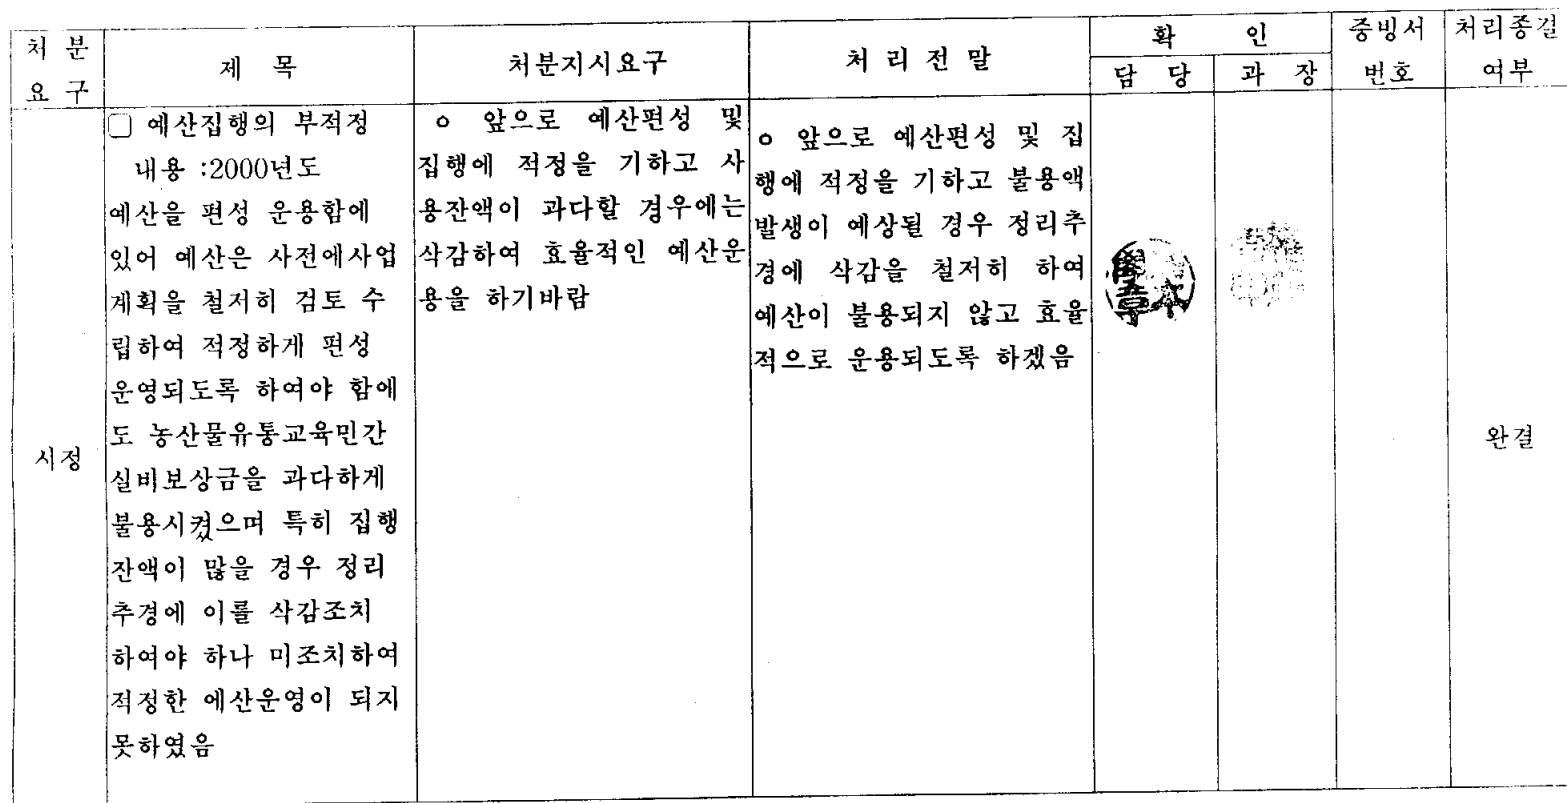 처 분
요 구
제 목
처분지시요구
처 리 전 말
확 인
담 당
과 장
증빙서
번호
처리종결
여부
시정
▢ 예산집행의 부적정
내용 :2000년도
예산을 편성 운용함에
있어 예산은 사전에사업
계획을 철저히 검토 수
립하여 적정하게 편성
운영되도록 하여야 함에
도 농산물유통교육민간
실비보상금을 과다하게
불용시켰으며 특히 집행
잔액이 많을 경우 정리
추경에 이를 삭감조치
하여야 하나 미조치하여
적정한 예산운영이 되지
못하였음
o 앞으로 예산편성 및
집행에 적정을 기하고 사
용잔액이 과다할 경우에는
삭감하여 효율적인 예산운
용을 하기바람
o 앞으로 예산편성 및 집
행에 적정을 기하고 불용액
발생이 예상될 경우 정리추
경에 삭감을 철저히 하여
예산이 불용되지 않고 효율
적으로 운용되도록 하겠음
완결